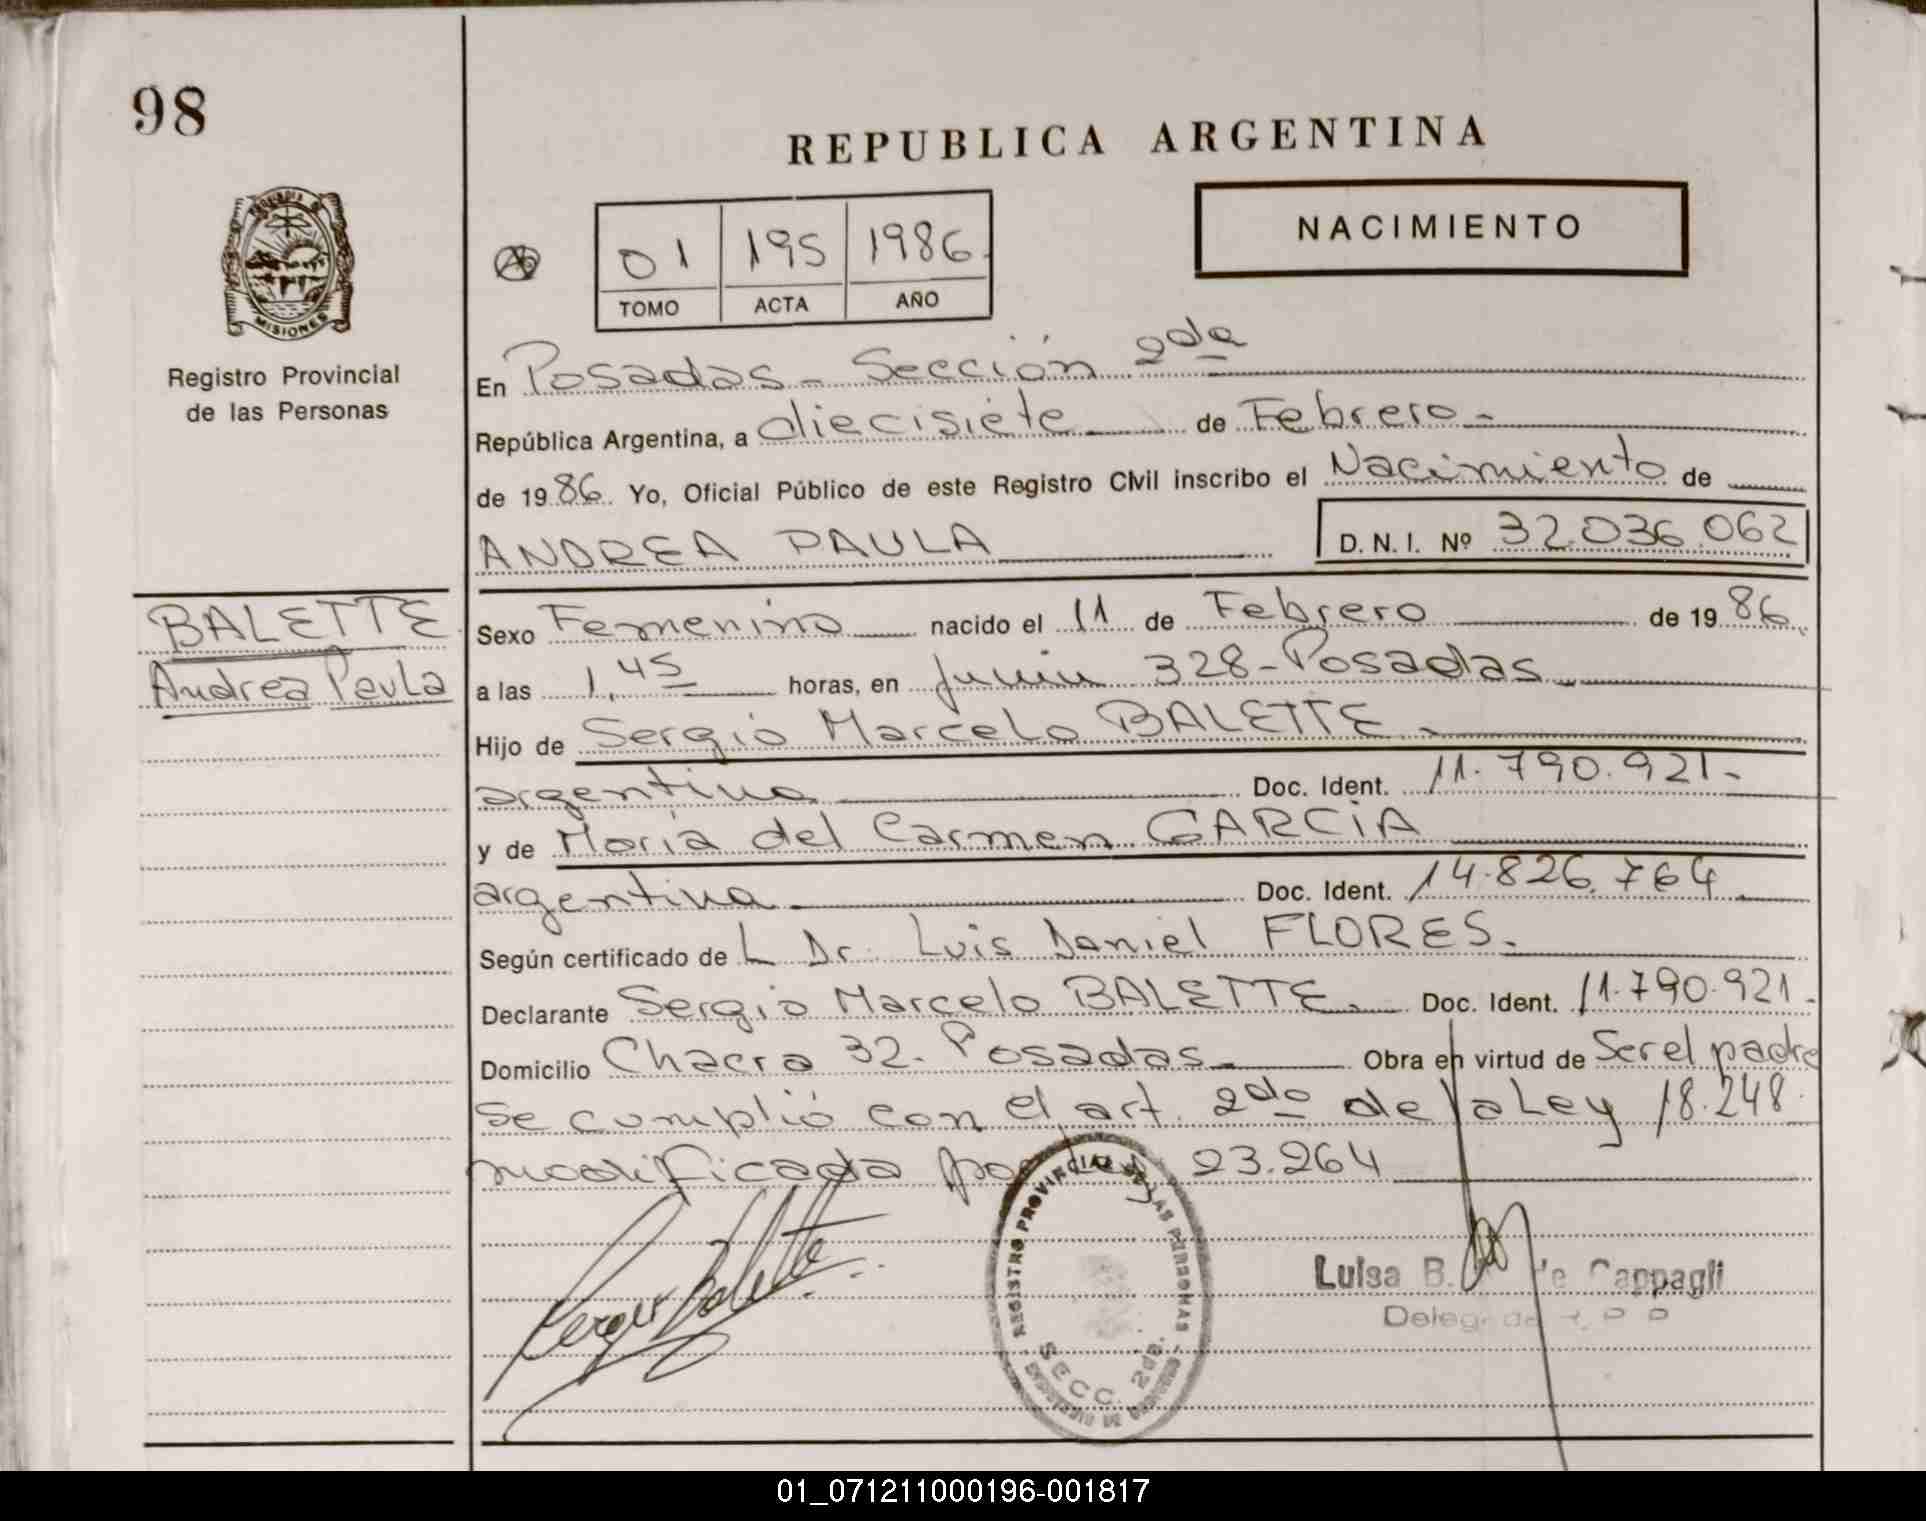 98
REPUBLICA ARGENTINA
NACIMIENTO
01 195 1986
TOMO ACTA AÑO
MISIONES
Registro Provincial
de las Personas
En Posadas - Sección 2da
República Argentina, a diecisiete de Febrero -
de 1986. Yo, Oficial Público de este Registro Civil inscribo el Nacimiento de
ANDREA PAULA D.N.I. Nº 32.036.062
BALETTE
Andrea Paula
Sexo Femenino nacido el 11 de Febrero de 1986.
a las 1,45 horas, en Junin 328 - Posadas
Hijo de Sergio Marcelo BALETTE -
argentina Doc. Ident. 11.790.921-
y de María del Carmen GARCIA
argentina Doc. Ident. 14.826.764
Según certificado de L Dr. Luis Daniel FLORES.
Declarante Sergio Marcelo BALETTE. Doc. Ident. 11.790.921-
Domicilio Chacra 32. Posadas Obra en virtud de Ser el padre
Se cumplió con el art. 2do de la Ley 18.248
modificada por Ley 23.264
Sergio Balette
REGISTRO PROVINCIAL DE LAS PERSONAS
SECC. 2da.
Luisa B. de Cappagli
01_071211000196-001817